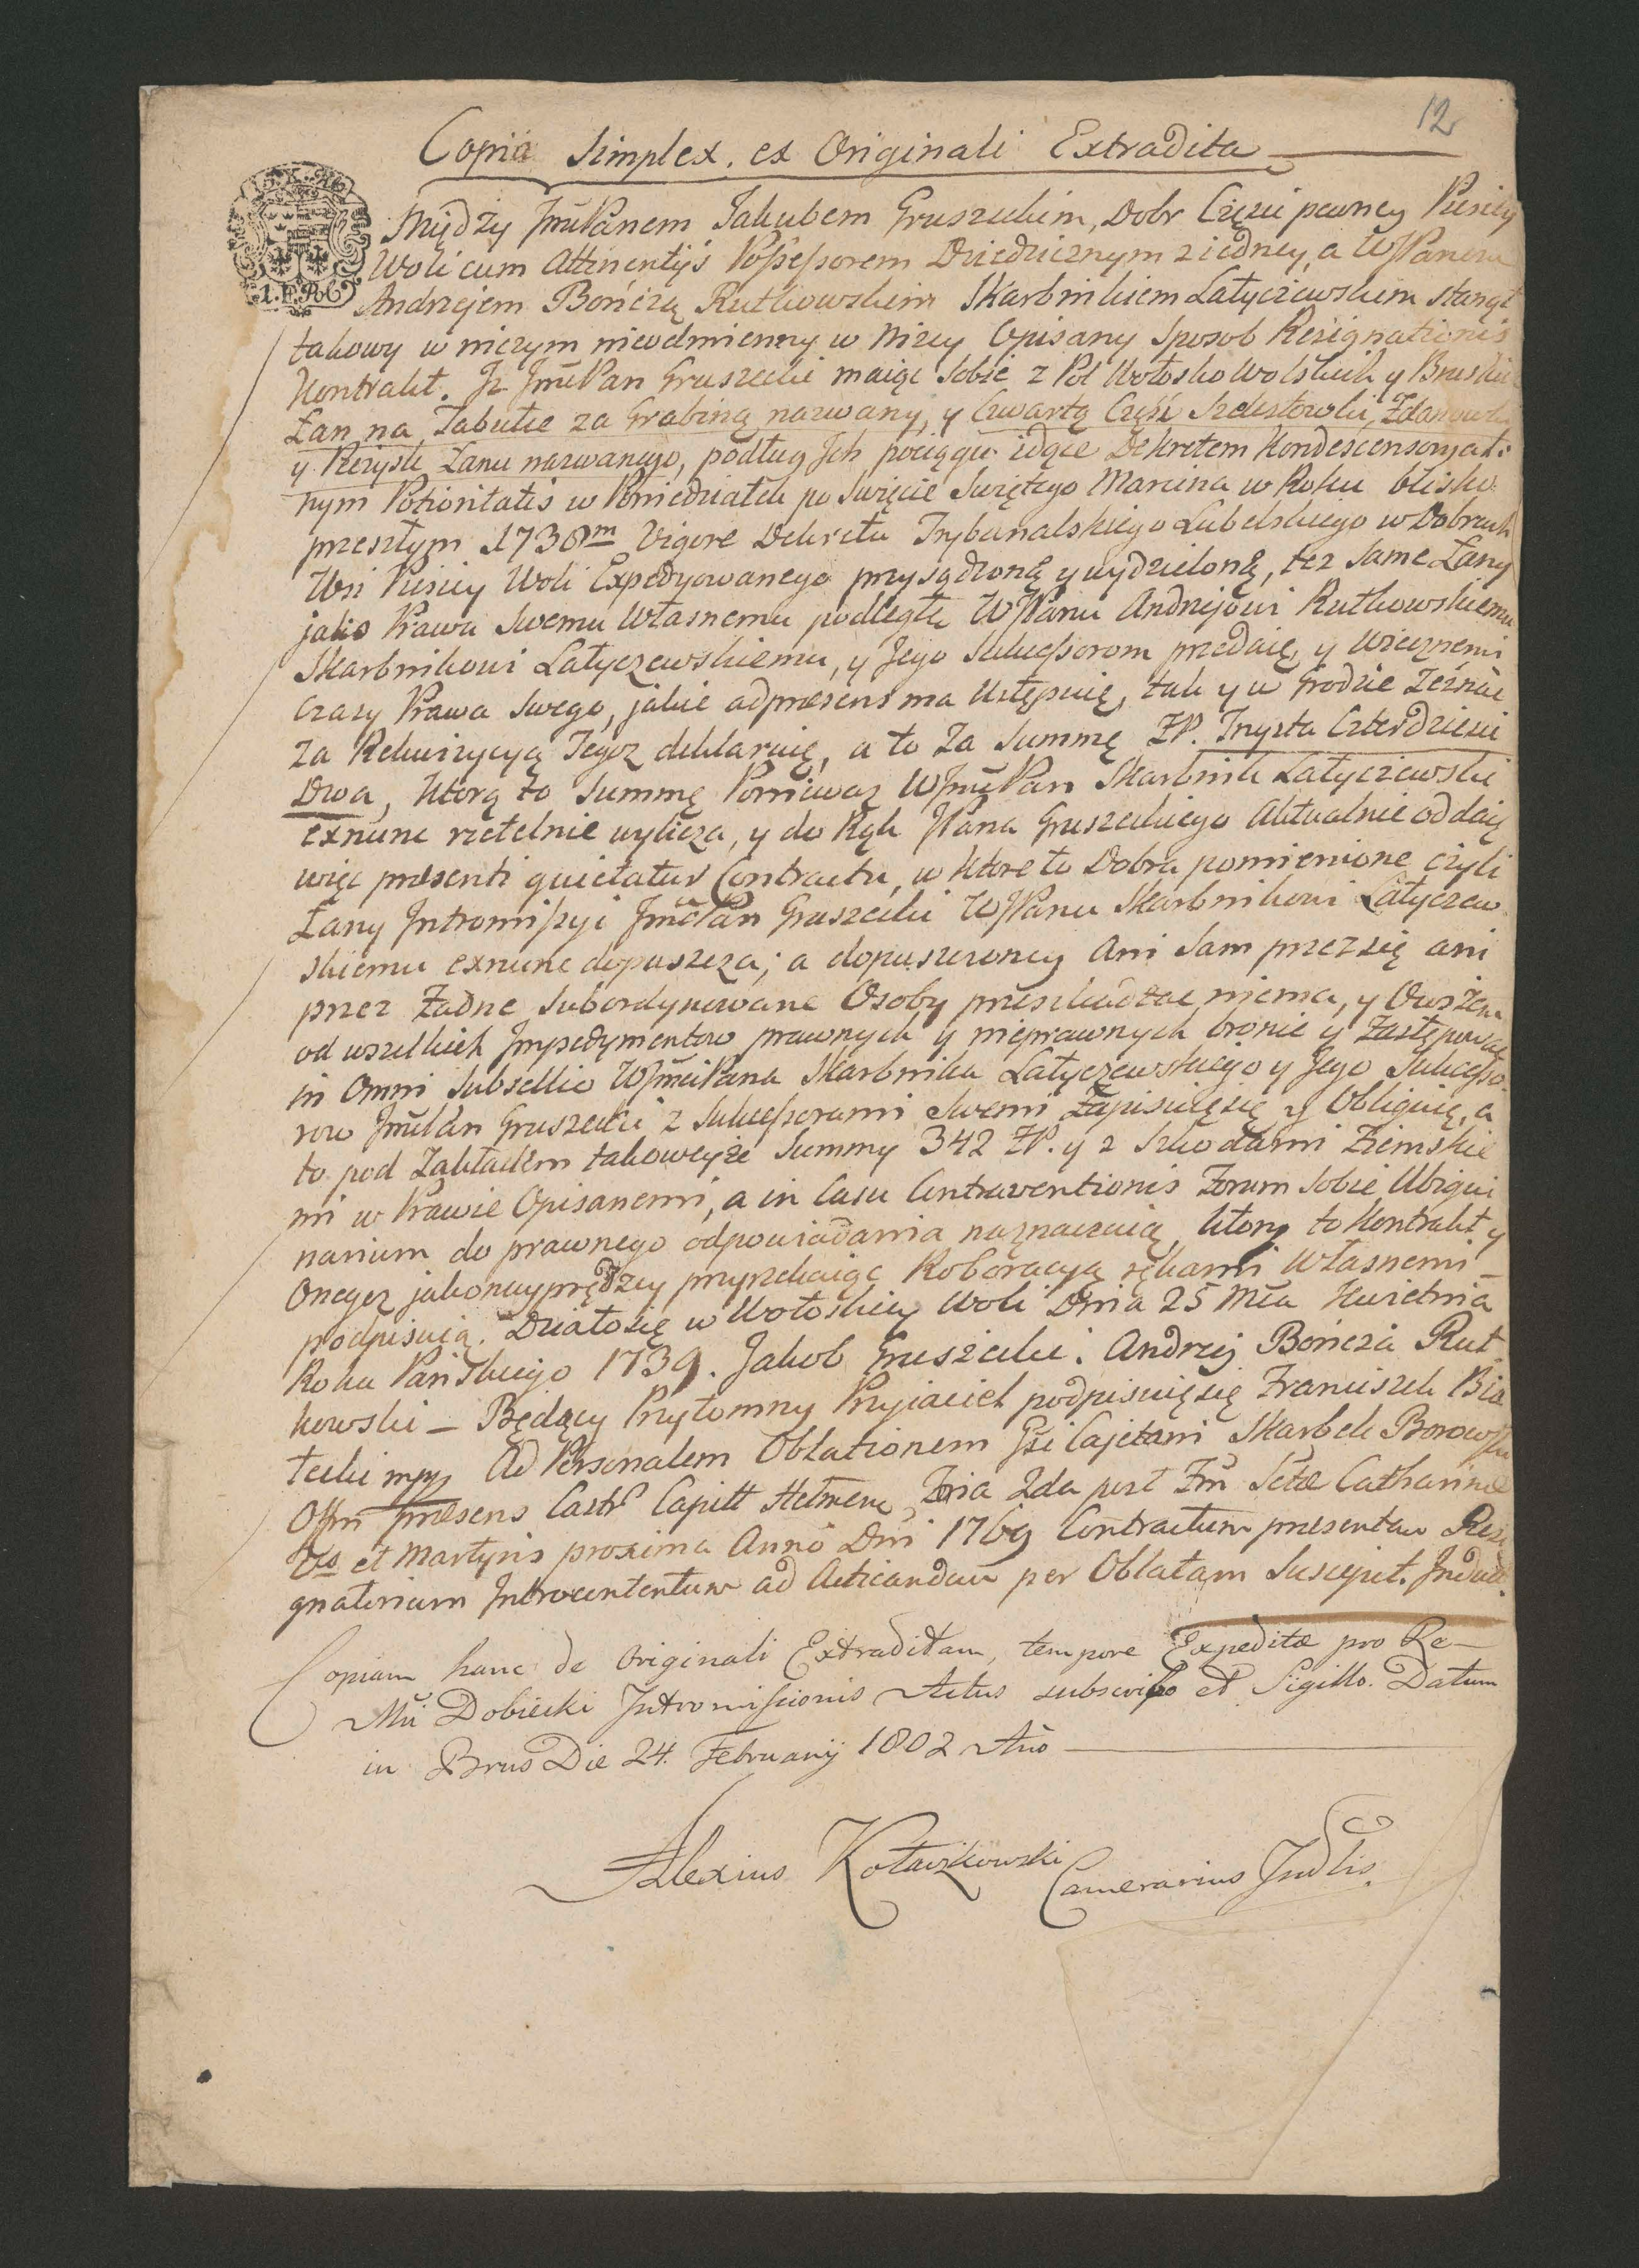 12
Copia Simplex, ex Originali Extradita
Między JmPanem Jakubem Gruszeckim, Dobr Części pewney Pusiey
Woli cum Attinentijs Possessorem Dziedzicznym z iedney, a WJPanem
Andrzejem Bończą Rutkowskim Skarbnikiem Latyczewskim stanął
takowy w niczym nieodmienny w Niżey Opisany Sposob Resignationis
Kontrakt. Iż JmPan Gruszecki maiąc Sobie z Pol Wołosko Wolskich y Bruskich
Łan na Tabule za Grabiną nazwany, y Czwartą Część Szelestowski, Zdanowski
y Rezysk Łanu nazwanego, podług Ich pociągu idące Dekretem Kondescensoryal
nym Potioritatis w Poniedziałek po Święcie Swiętego Marcina w Roku blisko
przeszłym 1738m Vigore Dekretu Trybunalskiego Lubelskiego w Dobrach
Wsi Pusiey Woli Expedyowanego przysądzoną y wydzieloną, też same Łany
jako Prawu Swemu Własnemu podległe WJPanu Andrzejowi Rutkowskiemu
Skarbnikowi Latyczewskiemu, y Jego Sukcessorom przedaię, y Wiecznemi
Czasy Prawa Swego, jakie adpræsens ma Ustępuię, tak y w Grodzie Zeznac
za Rekwizycyą Tegoż deklaruię, a to Za Summę ZP. Trysta Czterdzieści
Dwa, Ktorą to Summę Ponieważ WJmPan Skarbnik Latyczewski
exnunc rzetelnie wylicza, y do Rąk JPana Gruszeckiego Aktualnie oddaię
więc præsenti quietatur Contractu, w ktore to Dobra pomienione czyli
Łany Intromissyi JmcPan Gruszecki WJPanu Skarbnikowi Latyczew
skiemu exnunc dopuszcza; a dopuszczoney Ani Sam przez się ani
przez Żadne Subordynowane Osoby przeszkadzac niema, y Owszem
od wszelkich Impedymentow prawnych y nieprawnych bronic y Zastępowac
in Omni Subsellio WJmciPana Skarbnika Latyczewskiego y Jego Sukcesso
row JmPan Gruszecki z Sukcessorami Swemi Zapisuię się y Obliguię, a
to pod Zakładem takoweyże Summy 342 ZP. y z Szkodami Ziemskie
mi w Prawie Opisanemi, a in Casu Contraventionis Forum Sobie Ubiqui
narium do prawnego odpowiadania naznaczaią, Ktory to Kontrakt y
Onegoż jaknayprędzey przyrzekaiąc Roboracyą rękami Własnemi
podpisuią. Działo się w Wołoskiey Woli Dnia 25 Mca Kwietnia
Roku Pańskiego 1739. Jakob Gruszecki. Andrzej Bończa Rut
kowski – Będący Przytomny Przyiaciel podpisuię się Franciszek Bia
łecki mpp Ad Personalem Oblationem Gsi Cajetani Skarbek Borowski
Offm præsens Castr Capitt Chelmen Feria 2da post Fm Sctæ Catharinæ
Vs et Martyris proxima Anno Dni 1769 Contractum præsentem Resi
gnatorium Introcontentum ad Acticandum per Oblatam Suscepit. Induct.
Copiam hanc de Originali Extraditam, tempore Expeditæ pro Re-
Mũ Dobiecki Intromissionis Actus subscribo et Sigillo. Datum
in Brus Die 24. Februarij 1802 Ano
Alexius Kołaczkowski Camerarius Judlis.